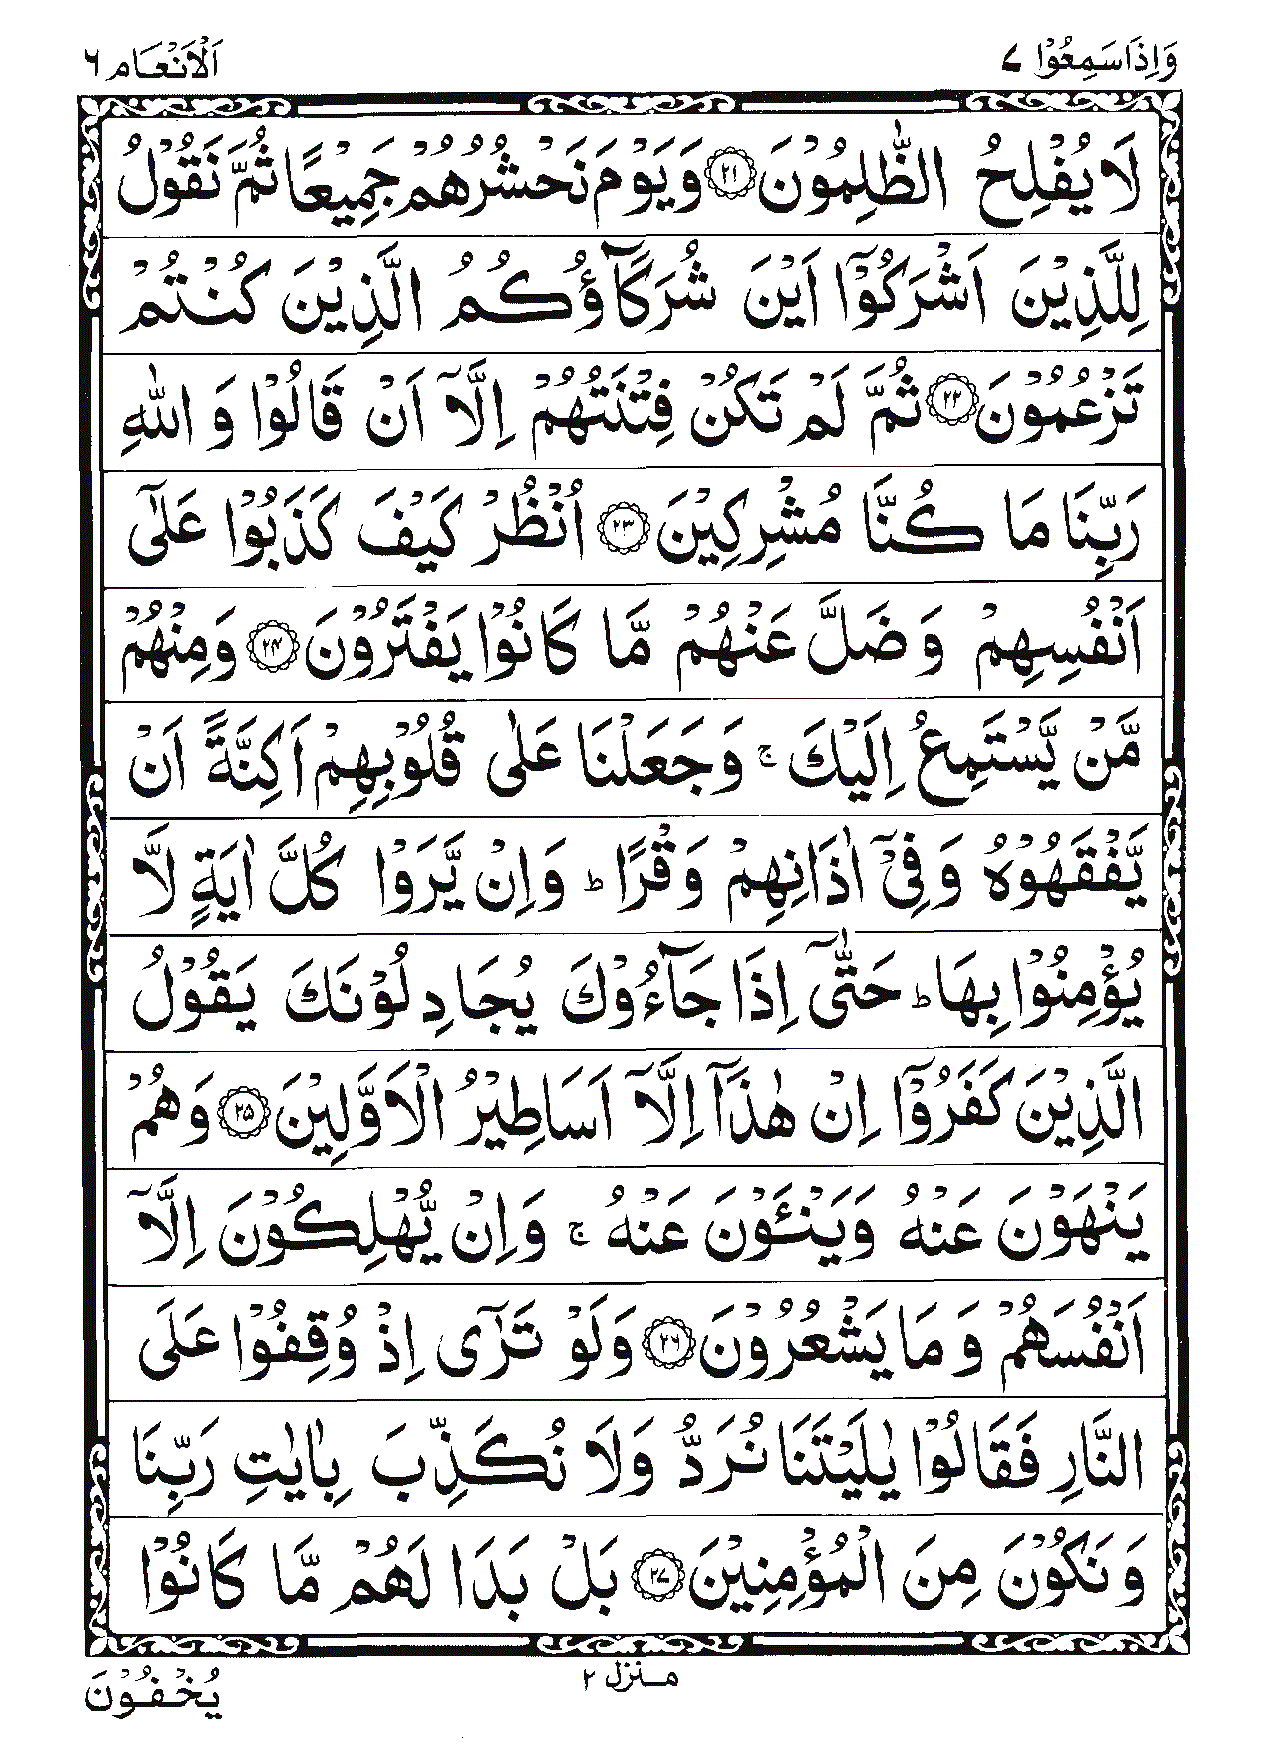 وَاِذَاسَمِعُوْا ٧
اَلْاَنْعَام ٦
لَا يُفْلِحُ الظّٰلِمُوْنَ ٢١ وَيَوْمَ نَحْشُرُهُمْ جَمِيْعًا ثُمَّ نَقُوْلُ
لِلَّذِيْنَ اَشْرَكُوْٓا اَيْنَ شُرَكَآؤُكُمُ الَّذِيْنَ كُنْتُمْ
تَزْعُمُوْنَ ٢٢ ثُمَّ لَمْ تَكُنْ فِتْنَتُهُمْ اِلَّآ اَنْ قَالُوْا وَ اللّٰهِ
رَبِّنَا مَا كُنَّا مُشْرِكِيْنَ ٢٣ اُنْظُرْ كَيْفَ كَذَبُوْا عَلٰٓى
اَنْفُسِهِمْ وَ ضَلَّ عَنْهُمْ مَّا كَانُوْا يَفْتَرُوْنَ ٢٤ وَمِنْهُمْ
مَّنْ يَّسْتَمِعُ اِلَيْكَ ۚ وَجَعَلْنَا عَلٰى قُلُوْبِهِمْ اَكِنَّةً اَنْ
يَّفْقَهُوْهُ وَفِيْٓ اٰذَانِهِمْ وَقْرًا ؕ وَاِنْ يَّرَوْا كُلَّ اٰيَةٍ لَّا
يُؤْمِنُوْا بِهَا ؕ حَتّٰٓى اِذَا جَآءُوْكَ يُجَادِلُوْنَكَ يَقُوْلُ
الَّذِيْنَ كَفَرُوْٓا اِنْ هٰذَآ اِلَّآ اَسَاطِيْرُ الْاَوَّلِيْنَ ٢٥ وَهُمْ
يَنْهَوْنَ عَنْهُ وَيَنْـَٔوْنَ عَنْهُ ۚ وَاِنْ يُّهْلِكُوْنَ اِلَّآ
اَنْفُسَهُمْ وَ مَا يَشْعُرُوْنَ ٢٦ وَلَوْ تَرٰٓى اِذْ وُقِفُوْا عَلَى
النَّارِ فَقَالُوْا يٰلَيْتَنَا نُرَدُّ وَلَا نُكَذِّبَ بِاٰيٰتِ رَبِّنَا
وَ نَكُوْنَ مِنَ الْمُؤْمِنِيْنَ ٢٧ بَلْ بَدَا لَهُمْ مَّا كَانُوْا
منزل ٢
يُخْفُوْنَ